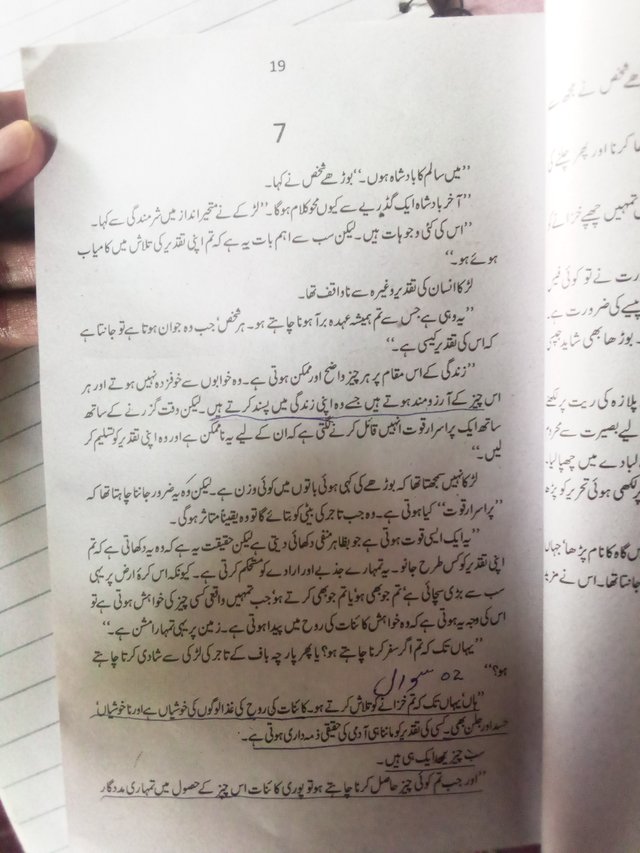 19
7
”میں سالم کا بادشاہ ہوں۔“ بوڑھے شخص نے کہا۔
”آخر بادشاہ ایک گڈریے سے کیوں محو کلام ہوگا۔“ لڑکے نے متحیر انداز میں شرمندگی سے کہا۔
”اس کی کئی وجوہات ہیں۔ لیکن سب سے اہم بات یہ ہے کہ تم اپنی تقدیر کی تلاش میں کامیاب
ہوئے ہو۔“
لڑکا انسان کی تقدیر وغیرہ سے ناواقف تھا۔
”یہ وہی ہے جس سے تم ہمیشہ عہدہ برآ ہونا چاہتے ہو۔ ہر شخص‘ جب وہ جوان ہوتا ہے تو جانتا ہے
کہ اس کی تقدیر کیسی ہے۔“
”زندگی کے اس مقام پر ہر چیز واضح اور ممکن ہوتی ہے۔ وہ خوابوں سے خوفزدہ نہیں ہوتے اور ہر
اس چیز کے آرزومند ہوتے ہیں جسے وہ اپنی زندگی میں پسند کرتے ہیں۔ لیکن وقت گزرنے کے ساتھ
ساتھ ایک پراسرار قوت انہیں قائل کرنے لگتی ہے کہ ان کے لیے یہ ناممکن ہے اور وہ اپنی تقدیر کو تسلیم کر
لیں۔“
لڑکا نہیں سمجھتا تھا کہ بوڑھے کی کہی ہوئی باتوں میں کوئی وزن ہے۔ لیکن وہ یہ ضرور جاننا چاہتا تھا کہ
”پراسرار قوت“ کیا ہوتی ہے۔ وہ جب تاجر کی بیٹی کو بتائے گا تو وہ یقیناً متاثر ہوگی۔
”یہ ایک ایسی قوت ہوتی ہے جو بظاہر منفی دکھائی دیتی ہے لیکن حقیقت یہ ہے کہ وہ یہ دکھاتی ہے کہ تم
اپنی تقدیر کو کس طرح جانو۔ یہ تمہارے جذبے اور ارادے کو مستحکم کرتی ہے۔ کیونکہ اس کرۂ ارض پر یہی
سب سے بڑی سچائی ہے‘ تم جو بھی ہو‘ یا تم جو بھی کرتے ہو‘ جب تمہیں واقعی کسی چیز کی خواہش ہوتی ہے تو
اس کی وجہ یہ ہوتی ہے کہ وہ خواہش کائنات کی روح میں پیدا ہوتی ہے۔ زمین پر یہی تمہارا مشن ہے۔“
”یہاں تک کہ تم اگر سفر کرنا چاہتے ہو؟ یا پھر پارچہ باف کے تاجر کی لڑکی سے شادی کرنا چاہتے
ہو؟“
02 سوال
”ہاں‘ یہاں تک کہ تم خزانے کو تلاش کرتے ہو۔ کائنات کی روح کی غذا لوگوں کی خوشیاں ہے اور ناخوشیاں‘
حسد اور جلن بھی۔ کسی کی تقدیر کو ماننا ہی آدمی کی حقیقی ذمہ داری ہوتی ہے۔
سب چیزیں ایک ہی ہیں۔
”اور جب تم کوئی چیز حاصل کرنا چاہتے ہو تو پوری کائنات اس چیز کے حصول میں تمہاری مددگار